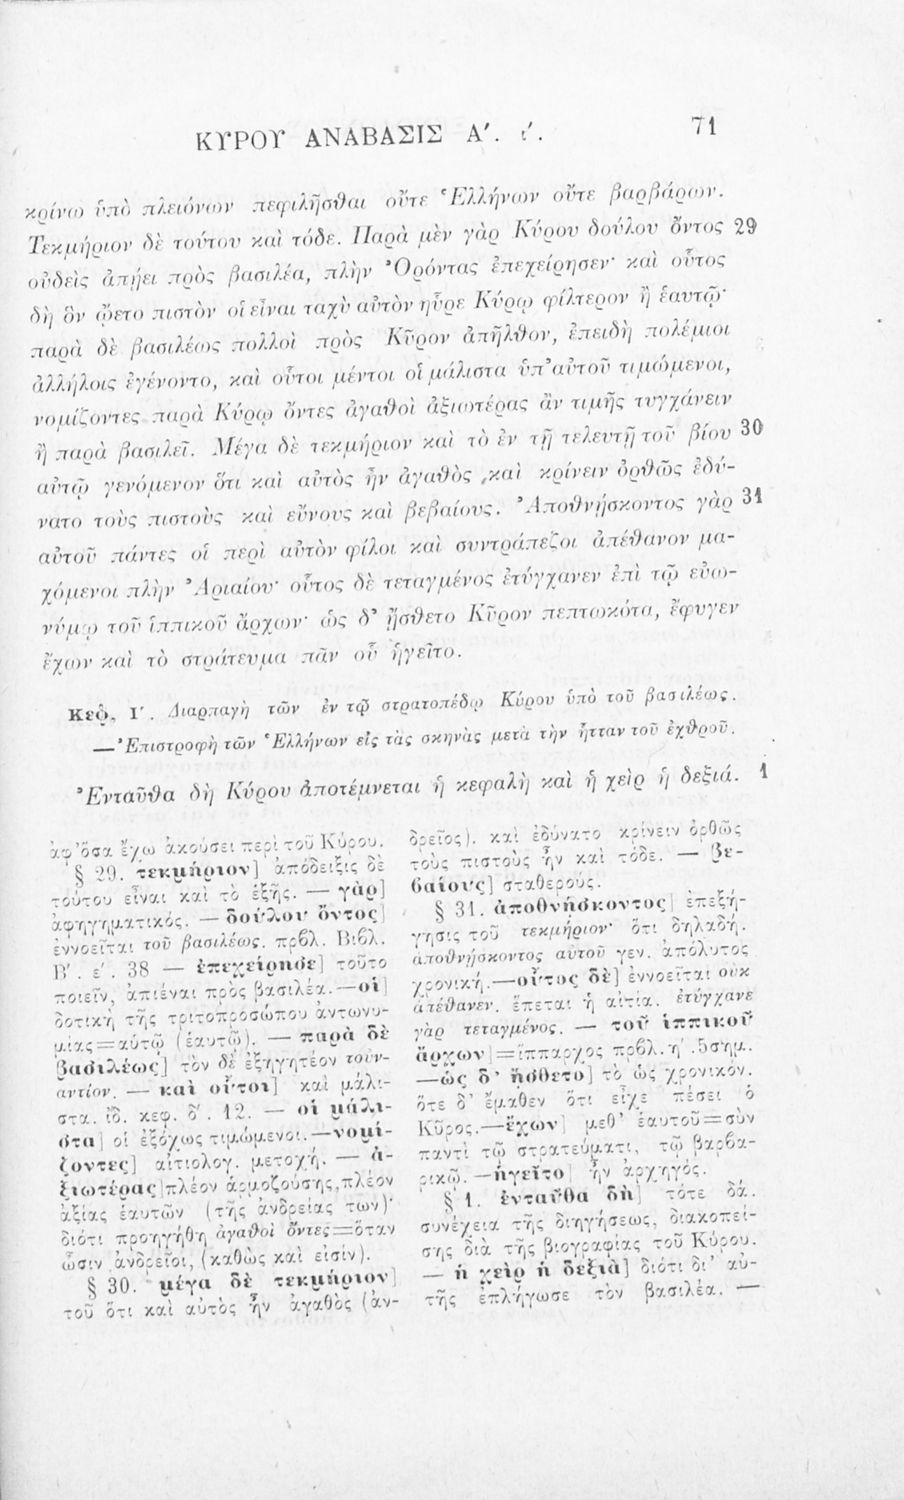 ΚΥΡΟΥ ΑΝΑΒΑΣΙΣ Α′. ι′. 71
κρίνω ὑπὸ πλειόνων πεφιλῆσθαι οὔτε Ἑλλήνων οὔτε βαρβάρων.
Τεκμήριον δὲ τούτου καὶ τόδε. Παρὰ μὲν γὰρ Κύρου δούλου ὄντος 29
οὐδεὶς ἀπῄει πρὸς βασιλέα, πλὴν Ὀρόντας ἐπεχείρησεν· καὶ οὗτος
δὴ ὃν ᾤετο πιστὸν οἱ εἶναι ταχὺ αὐτὸν ηὗρε Κύρῳ φίλτερον ἢ ἑαυτῷ·
παρὰ δὲ βασιλέως πολλοὶ πρὸς Κῦρον ἀπῆλθον, ἐπειδὴ πολέμιοι
ἀλλήλοις ἐγένοντο, καὶ οὗτοι μέντοι οἱ μάλιστα ὑπ' αὐτοῦ τιμώμενοι,
νομίζοντες παρὰ Κύρῳ ὄντες ἀγαθοὶ ἀξιωτέρας ἂν τιμῆς τυγχάνειν
ἢ παρὰ βασιλεῖ. Μέγα δὲ τεκμήριον καὶ τὸ ἐν τῇ τελευτῇ τοῦ βίου 30
αὐτῷ γενόμενον ὅτι καὶ αὐτὸς ἦν ἀγαθὸς καὶ κρίνειν ὀρθῶς ἐδύ-
νατο τοὺς πιστοὺς καὶ εὔνους καὶ βεβαίους. Ἀποθνῄσκοντος γὰρ 31
αὐτοῦ πάντες οἱ περὶ αὐτὸν φίλοι καὶ συντράπεζοι ἀπέθανον μα-
χόμενοι πλὴν Ἀριαίου· οὗτος δὲ τεταγμένος ἐτύγχανεν ἐπὶ τῷ εὐω-
νύμῳ τοῦ ἱππικοῦ ἄρχων· ὡς δ' ᾔσθετο Κῦρον πεπτωκότα, ἔφυγεν
ἔχων καὶ τὸ στράτευμα πᾶν οὗ ἡγεῖτο.
Κεφ. Ι′. Διαρπαγὴ τῶν ἐν τῷ στρατοπέδῳ Κύρου ὑπὸ τοῦ βασιλέως.
—Ἐπιστροφὴ τῶν Ἑλλήνων εἰς τὰς σκηνὰς μετὰ τὴν ἧτταν τοῦ ἐχθροῦ.
Ἐνταῦθα δὴ Κύρου ἀποτέμνεται ἡ κεφαλὴ καὶ ἡ χεὶρ ἡ δεξιά. 1
ἀφ' ὅσα ἔχω ἀκούσει περὶ τοῦ Κύρου.
§ 29. τεκμήριον] ἀπόδειξις δὲ
τούτου εἶναι καὶ τὸ ἑξῆς. — γὰρ]
ἀφηγηματικός. — δούλου ὄντος]
ἐννοεῖται τοῦ βασιλέως. πρβλ. Βιβλ.
Β′. ε′. 38 — ἐπεχείρησε] τοῦτο
ποιεῖν, ἀπιέναι πρὸς βασιλέα.—οἱ]
δοτικὴ τῆς τριτοπροσώπου ἀντωνυ-
μίας=αὑτῷ (ἑαυτῷ). — παρὰ δὲ
βασιλέως] τὸν δὲ ἐξηγητέον τοὐν-
αντίον. — καὶ οὗτοι] καὶ μάλι-
στα. ἰδ. κεφ. δ′. 12. — οἱ μάλι-
στα] οἱ ἐξόχως τιμώμενοι.—νομί-
ζοντες] αἰτιολογ. μετοχή. — ἀ-
ξιωτέρας] πλέον ἁρμοζούσης, πλέον
ἀξίας ἑαυτῶν (τῆς ἀνδρείας των)·
διότι προηγήθη ἀγαθοὶ ὄντες=ὅταν
ὦσιν ἀνδρεῖοι, (καθὼς καὶ εἰσίν).
§ 30. μέγα δὲ τεκμήριον]
τοῦ ὅτι καὶ αὐτὸς ἦν ἀγαθὸς (ἀν-
δρεῖος). καὶ ἐδύνατο κρίνειν ὀρθῶς
τοὺς πιστοὺς ἦν καὶ τόδε. — βε-
βαίους] σταθερούς.
§ 31. ἀποθνήσκοντος] ἐπεξή-
γησις τοῦ τεκμήριον· ὅτι δηλαδή.
ἀποθνῄσκοντος αὐτοῦ γεν. ἀπόλυτος
χρονική.—οὗτος δὲ] ἐννοεῖται οὐκ
ἀπέθανεν. ἕπεται ἡ αἰτία. ἐτύγχανε
γὰρ τεταγμένος. — τοῦ ἱππικοῦ
ἄρχων]=ἵππαρχος πρβλ. η′. 5σημ.
—ὡς δ' ᾔσθετο] τὸ ὡς χρονικόν.
ὅτε δ' ἔμαθεν ὅτι εἶχε πέσει ὁ
Κῦρος.—ἔχων] μεθ' ἑαυτοῦ=σὺν
παντὶ τῷ στρατεύματι, τῷ βαρβα-
ρικῷ.—ἡγεῖτο] ἦν ἀρχηγός.
§ 1. ἐνταῦθα δὴ] τότε δά.
συνέχεια τῆς διηγήσεως, διακοπεί-
σης διὰ τῆς βιογραφίας τοῦ Κύρου.
— ἡ χεὶρ ἡ δεξιὰ] διότι δι' αὐ-
τῆς ἐπλήγωσε τὸν βασιλέα. —